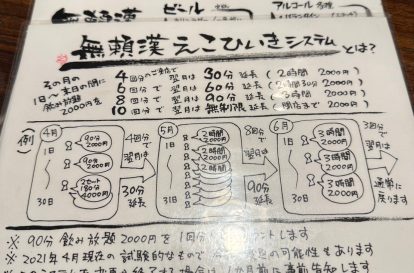 無頼漢
ビール
アルコール
無頼漢えこひいきシステムとは?
その月の
1日〜末日の間に
飲み放題
2000円を
4回分のご来店で 翌月は 30分 延長 (2時間 2000円)
6回分で 翌月は 60分 延長 (2時間30分 2000円)
8回分で 翌月は 90分 延長 (3時間 2000円)
10回分で 翌月は 無制限 延長 (閉店まで 2000円)
例)
4月
1日
30日
90分
2000円
90分
2000円
2セット
180分
4000円
4回分で
翌月は
30分
延長
5月
1日
30日
2時間
2000円
2時間
2000円
8回分で
翌月は
90分
延長
6月
1日
30日
3時間
2000円
3時間
2000円
3時間
2000円
3回分で
翌月は
通常に
戻ります
※ 90分 飲み放題 2000円を 1回分 カウントします
※ 2021年4月現在の試験的なもので の可能性もあります